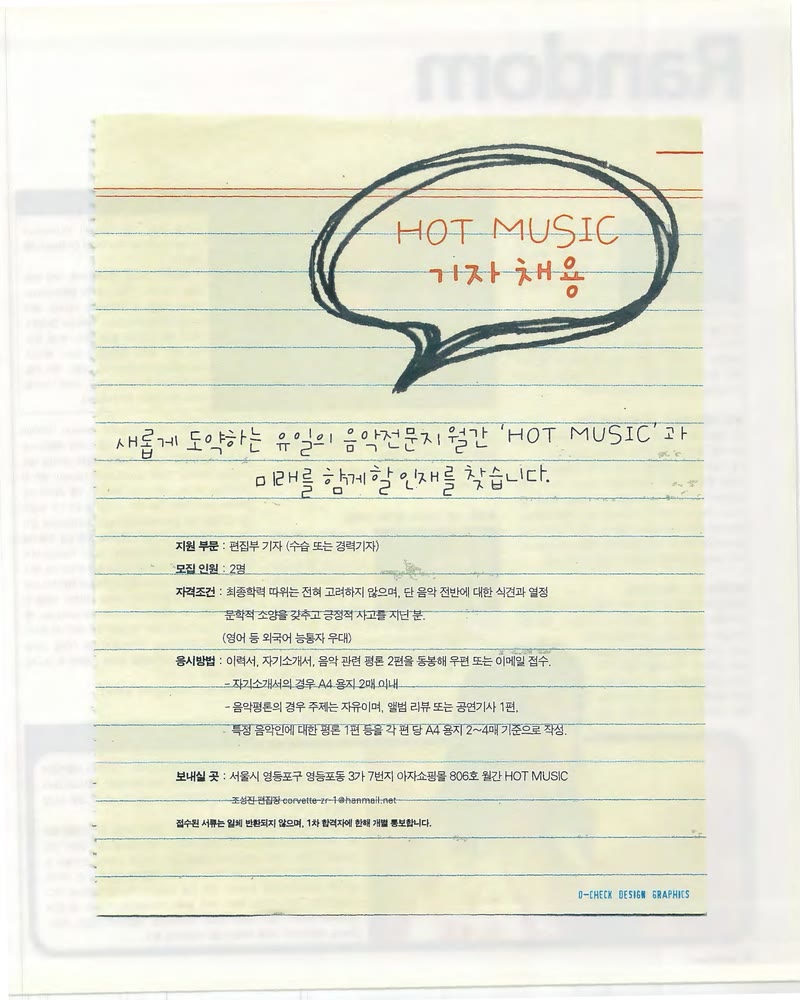 Random
HOT MUSIC
기자 채용
새롭게 도약하는 유일의 음악전문지 월간 'HOT MUSIC'과
미래를 함께할 인재를 찾습니다.
지원 부문 : 편집부 기자 (수습 또는 경력기자)
모집 인원 : 2명
자격조건 : 최종학력 따위는 전혀 고려하지 않으며, 단 음악 전반에 대한 식견과 열정
문학적 소양을 갖추고 긍정적 사고를 지닌 분.
(영어 등 외국어 능통자 우대)
응시방법 : 이력서, 자기소개서, 음악 관련 평론 2편을 동봉해 우편 또는 이메일 접수.
- 자기소개서의 경우 A4 용지 2매 이내
- 음악평론의 경우 주제는 자유이며, 앨범 리뷰 또는 공연기사 1편,
특정 음악인에 대한 평론 1편 등을 각 편 당 A4 용지 2~4매 기준으로 작성.
보내실 곳 : 서울시 영등포구 영등포동 3가 7번지 아자쇼핑몰 806호 월간 HOT MUSIC
조성진 편집장 corvette-zr-1@hanmail.net
접수된 서류는 일체 반환되지 않으며, 1차 합격자에 한해 개별 통보합니다.
O-CHECK DESIGN GRAPHICS